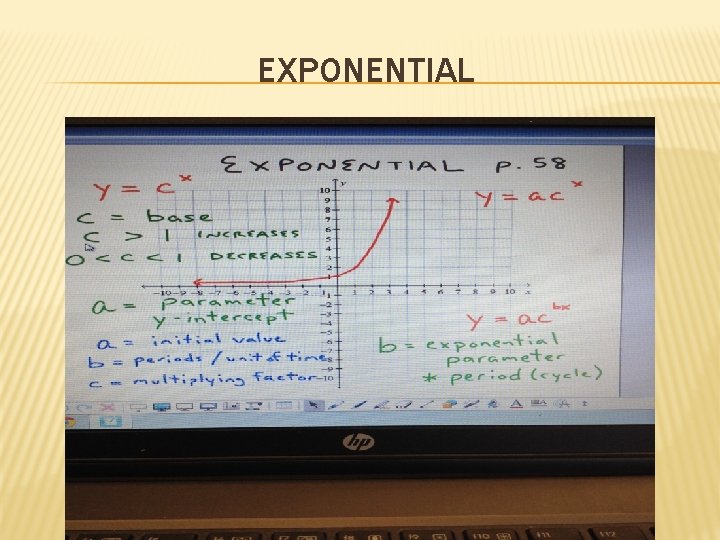 EXPONENTIAL
EXPONENTIAL P. 58
y = c^x
y = ac^x
c = base
c > 1 INCREASES
0 < c < 1 DECREASES
a = parameter
y-intercept
a = initial value
b = periods/unit of time
c = multiplying factor
y = ac^bx
b = exponential
parameter
* period (cycle)
y
10
9
8
7
6
5
4
3
2
1
-10 -9 -8 -7 -6 -5 -4 -3 -2 -1 1 2 3 4 5 6 7 8 9 10 x
-2
-3
-4
-5
-6
-7
-8
-9
-10
hp
f10
f11
f12